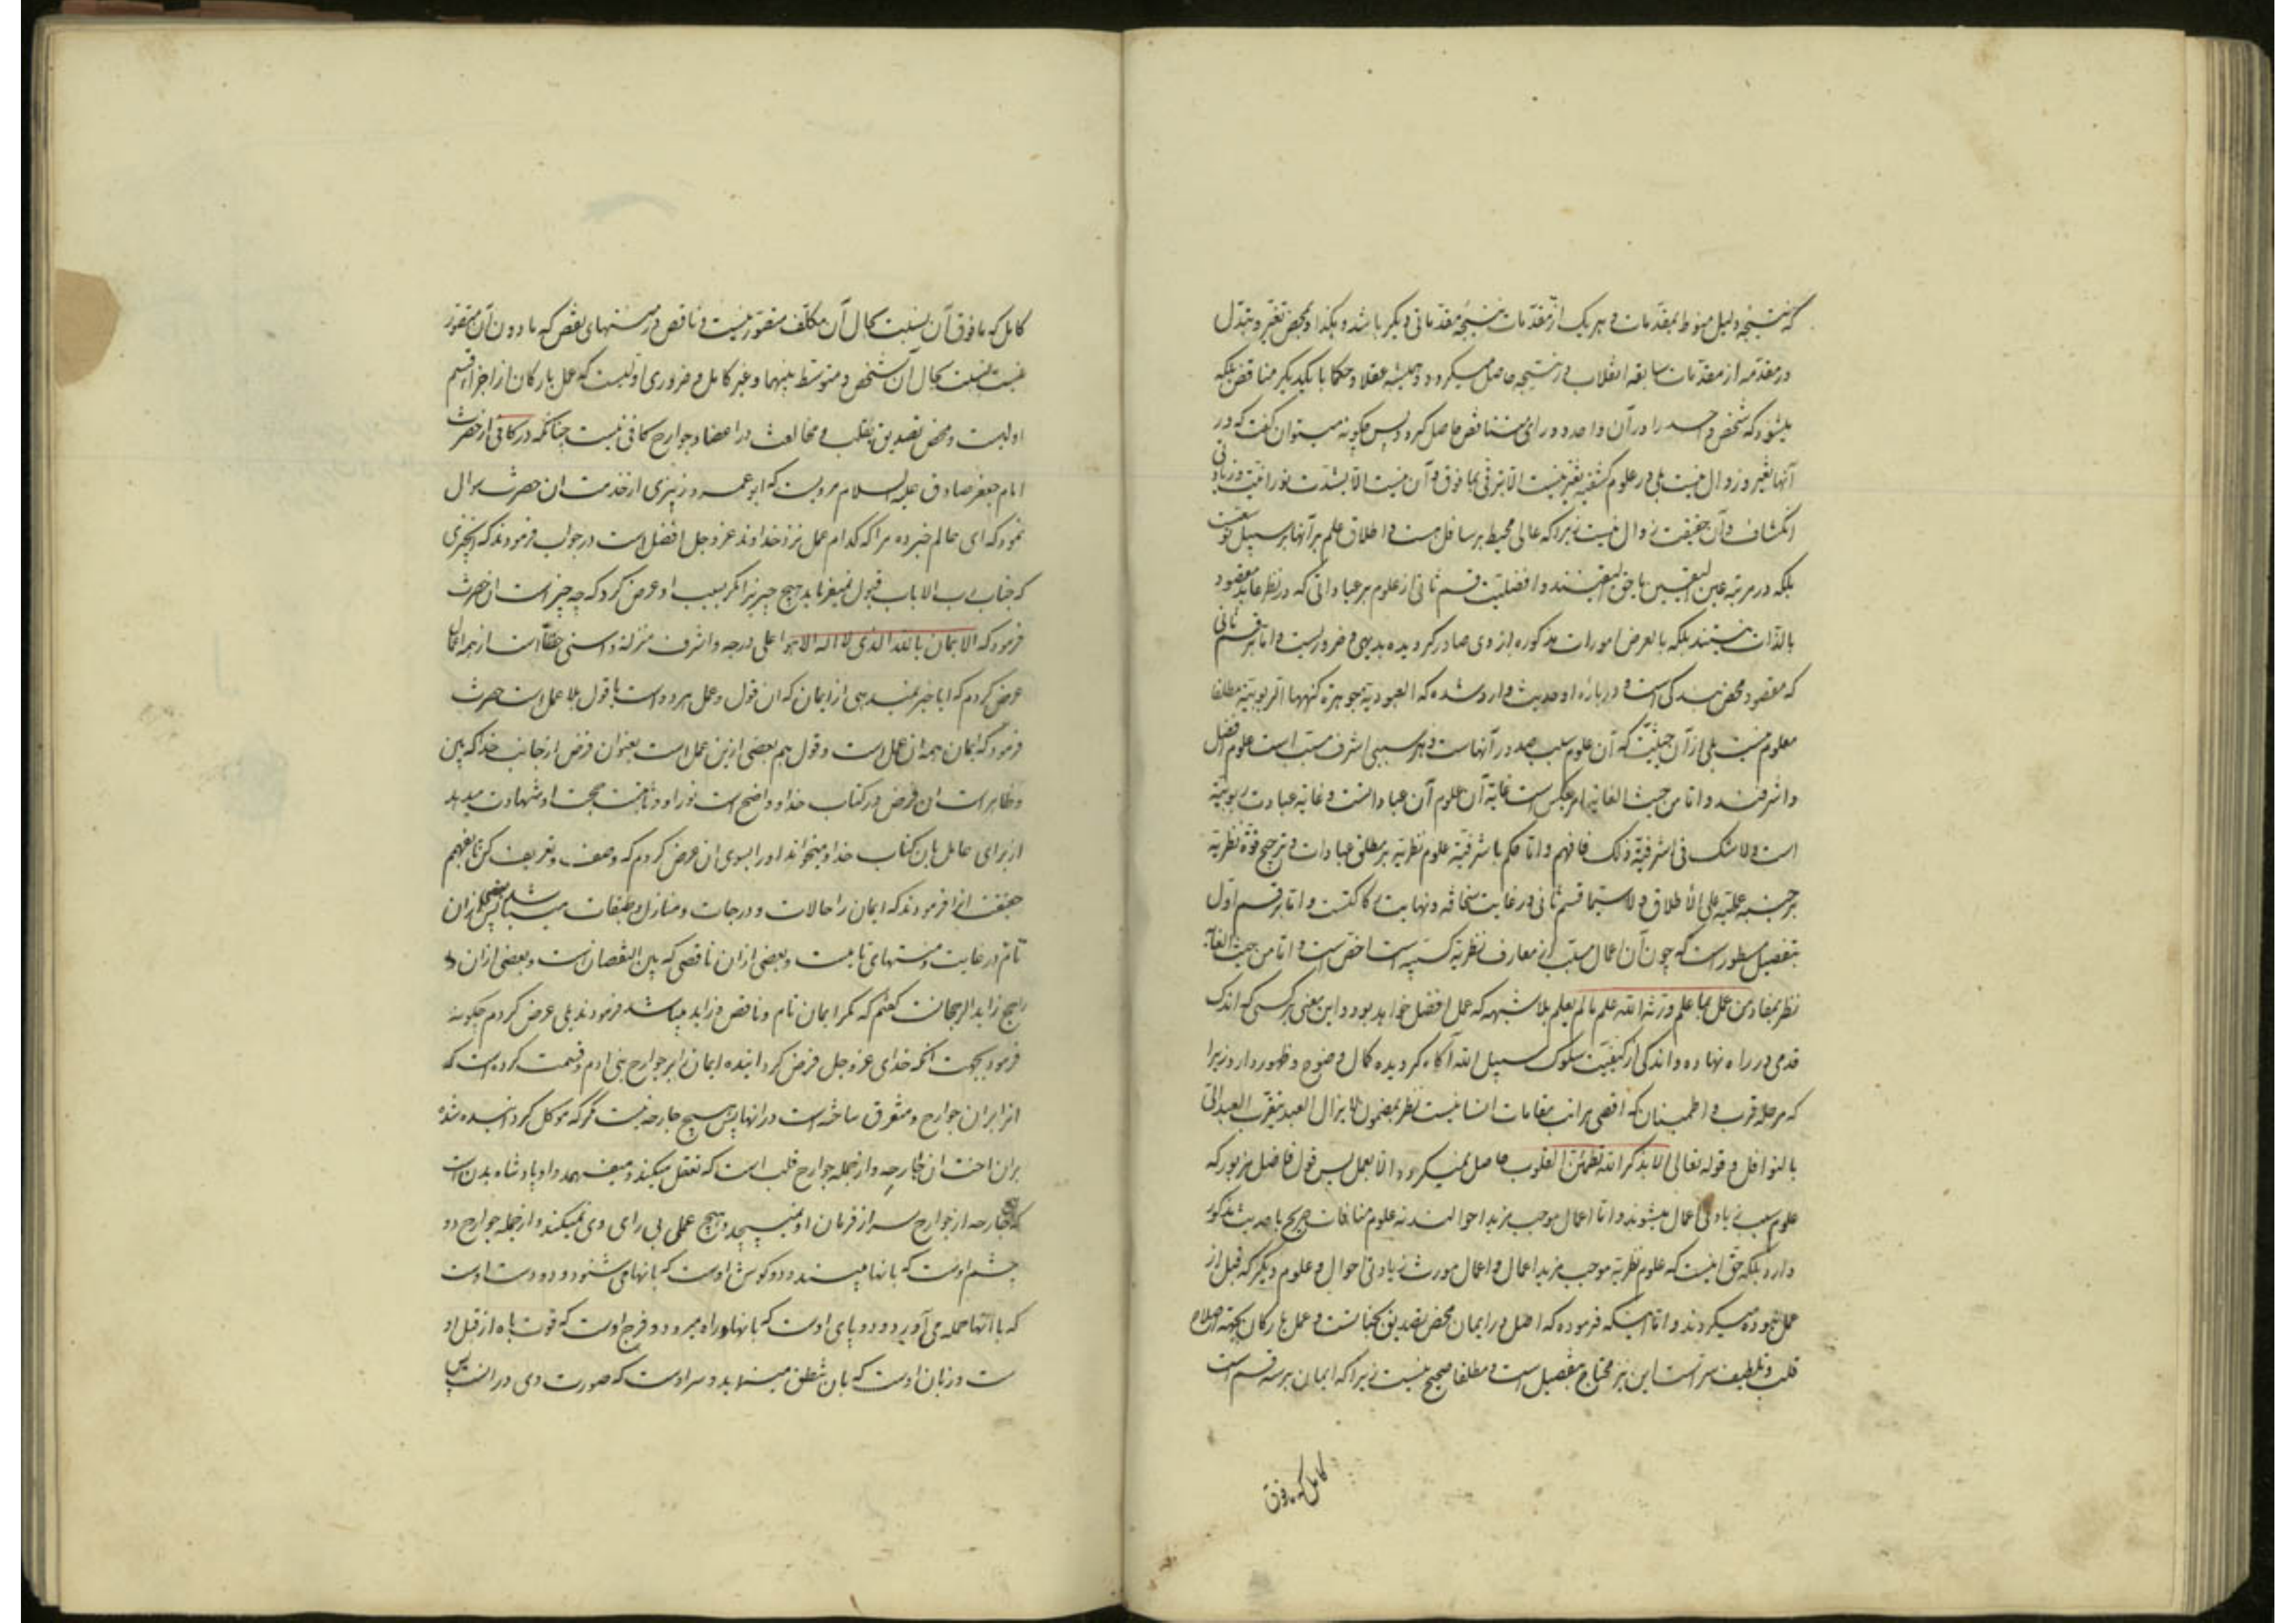 که نتیجه دلیل منوط بمقدمات و هر یک از مقدمات نتیجه مقدماتی دیگر باشد و هکذا و بمحض تغیر و تبدل
در مقدمه از مقدمات سابقه انقلاب در نتیجه حاصل میگردد و همیشه عقلا و حکما با یکدیگر مناقض بلکه
میشود که شخص واحد را در آن واحد دو رای متناقض حاصل گردد پس چگونه میتوان گفت که در
آنها تغیر و زوال نیست بلی در علوم کشفیه تغیر نیست الا بترقی بما فوق و آن نیست الا بشدت نورانیت و زیادتی
انکشاف و آن حقیقت زوال نیست زیرا که عالی محیط بر سافل هست و اطلاق علم بر آنها بر سبیل توسعت
بلکه در مرتبه عین الیقین یا حق الیقینند و افضلیت قسم ثانی از علوم بر عباداتی که در نظر عابد مقصود
بالذات نیستند بلکه بالعرض امورات مذکوره از وی صادر گردیده بدیهی و ضروریست و اما بر قسم ثانی
که مقصود محض بندگی است و در باره او حدیث وارد شده که العبودیة جوهرة کنهها الربوبیة مطلقا
معلوم نیست بلی از آن حیثیت که آن علوم سبب صدور آنهاست و هر سببی اشرف مسبب است علوم افضل
و اشرفند و اما من حیث الغایة امر بعکس است غایة آن علوم آن عباداتست و غایة عبادت ربوبیة
است و لا شک فی اشرفیة ذلک فافهم و اما حکم باشرفیة علوم نظریه بر مطلق عبادات و ترجیح قوة نظریه
بر جنبه عملیه علی الاطلاق و لا سیما قسم ثانی در غایت سخافه و نهایت رکاکتست و اما بر قسم اول
بتفصیل مسطور است که چون آن اعمال مسبب از معارف نظریه کسبیه است اخص است و اما من حیث الغایة
نظر بمفاد من عمل بما علم ورثه الله علم ما لم یعلم بلا شبهه که عمل افضل خواهد بود و این معنی بر کسی که اندک
قدمی در راه نهاده و اندکی از کیفیت سلوک سبیل الله آگاه گردیده کمال وضوح و ظهور دارد زیرا
که مرحله قرب و اطمینان که اقصی مراتب مقامات انسانیست نظر بمضمون لا یزال العبد یتقرب العبد الی
بالنوافل و قوله تعالی الا بذکر الله تطمئن القلوب حاصل نمیگردد الا بعمل پس قول فاضل مزبور که
علوم سبب زیادتی اعمال میشوند و اما اعمال موجب مزید احوالند نه علوم منافات صریح با حدیث مذکور
دارد بلکه حق اینست که علوم نظریه موجب مزید اعمال و اعمال مورث زیادتی احوال و علوم دیگر که قبل از
عمل نبوده میگردند و اما اینکه فرموده که اصل در ایمان محض تصدیق بجنانست و عمل بارکان بجهة اصلاح
قلب و تلطیف سر است این نیز محتاج بتفصیل است و مطلقا صحیح نیست زیرا که ایمان بر سه قسم است
کامل که ما فوق
کامل که ما فوق آن بنسبت بحال آن مکلف متصور نیست و ناقص در منتهای نقص که ما دون آن متصور
نیست بنسبت بحال آن شخص و متوسط بینهما و غیر کامل و ضروری اولیست که عمل بارکان از اجزاء قسم
اولیست و محض تصدیق بقلب و مخالفت در اعضا و جوارح کافی نیست چنانکه در کافی از حضرت
امام جعفر صادق علیه السلام مرویست که ابو عمرو زبیری از خدمت ان حضرت سوال
نمود که ای عالم خبر ده مرا که کدام عمل نزد خداوند عز و جل افضل است در جواب فرمودند که انچیزی
که جناب رب الارباب قبول نمیفرماید هیچ چیز را مگر بسبب او عرض کرد که چه چیز است ان حضرت
فرمود که الایمان بالله الذی لا اله الا هو اعلی درجه و اشرف منزلة و اسنی حظا است از همه اعمال
عرض کردم که ایا خبر نمیدهی از ایمان که ان قول و عمل هر دو است یا قول بلا عمل است حضرت
فرمود که ایمان همه ان عمل است و قول هم بعضی ازین عمل است بعنوان فرض از جانب خدا که بین
و ظاهر است ان فرض در کتاب خدا و واضح است نور او و ثابت حجت او شهادت میدهد
از برای عامل بان کتاب خدا و میخواند او را بسوی ان عرض کردم که وصف و تعریف کن تا بفهم
حقیقت انرا فرمودند که ایمان را حالات و درجات و منازل و طبقات میباشد پس بعضی ازان
تام در غایت و منتهای تمامیت و بعضی ازان ناقصی که بین النقصان است و بعضی ازان
راجح زاید الرجحانست گفتم که مگر ایمان تام و ناقص و زاید میباشد فرمودند بلی عرض کردم چگونه
فرمود بجهت انکه خدای عز و جل فرض گردانیده ایمان را بر جوارح بنی ادم و قسمت کرده است که
انرا بران جوارح و متفرق ساخته است در انها پس هیچ جارحه نیست مگر که موکل گردانیده شده
بران اخت ان جارحه و از جمله جوارح قلب است که تعقل میکند و میفهمد و او پادشاه بدن است
که جارحه از جوارح سر از فرمان او نمیپیچد و هیچ عملی بی رای وی نمیکند و از جمله جوارح دو
چشم اوست که بانها میبیند و دو گوش اوست که بانها می شنود و دو دست اوست
که با انها حمله می آورد و دو پای اوست که بانها راه میرود و فرج اوست که قوت باه از قبل او
ست و زبان اوست که بان نطق مینماید و سر اوست که صورت وی در انست پس